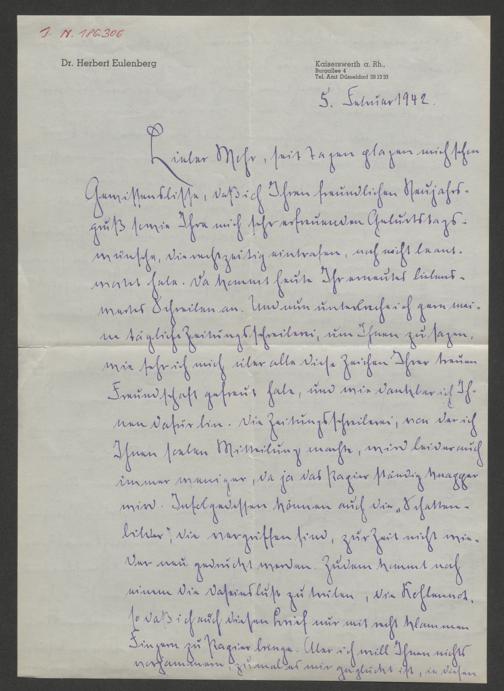 J. N. 186.306
Dr. Herbert Eulenberg
Kaiserswerth a. Rh.,
Burgallee 4
Tel. Amt Düsseldorf
5. Februar 1942.
Lieber Mohr, seit Tagen plagen mich schon
Gewissensbisse, daß ich Ihren freundlichen Neujahrs-
gruß sowie Ihre mich sehr erfreuenden Geburtstags-
wünsche, die rechtzeitig eintrafen, noch nicht beant-
wortet habe. Da kommt heute Ihr erneutes liebens-
wertes Schreiben an. Und nun unterbreche ich gern mei-
ne tägliche Zeitungsschreiberei, um Ihnen zu sagen,
wie sehr ich mich über alle diese Zeichen Ihrer treuen
Freundschaft gefreut habe, und wie dankbar ich Ih-
nen dafür bin. Die Zeitungsschreiberei, von der ich
Ihnen soeben Mitteilung machte, wird leider auch
immer weniger, da ja das Papier ständig knapper
wird. Infolgedessen können auch die „Schatten-
bilder", die vergriffen sind, zur Zeit nicht wie-
der neu gedruckt werden. Zudem kommt noch
einem die Daseinslust zu , die Kohlennot,
so daß ich auch diesen Brief nur mit recht klammen
Fingern zu Papier bringe. Aber ich will Ihnen nichts
vorjammern, zumal es mir geglückt ist, in diesen